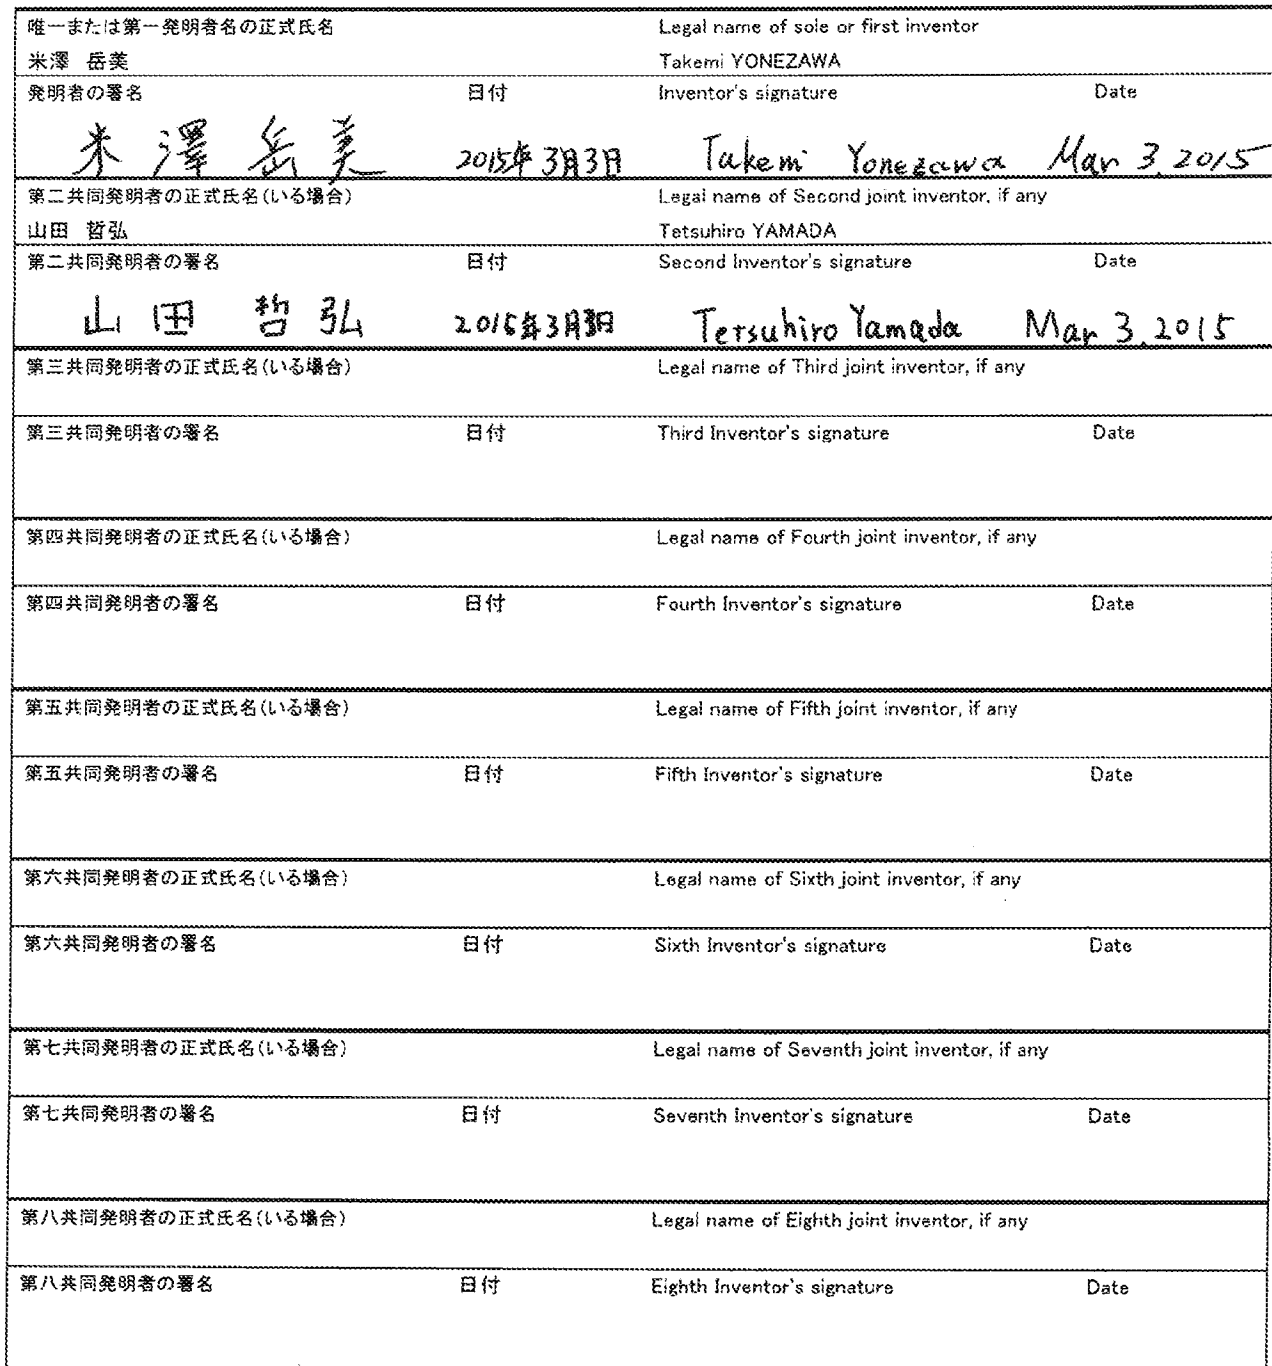 唯一または第一発明者名の正式氏名 Legal name of sole or first inventor
米澤 岳美 Takemi YONEZAWA
発明者の署名 日付 Inventor's signature Date
米澤岳美 2015年3月3日 Takemi Yonezawa Mar 3, 2015
第二共同発明者の正式氏名(いる場合) Legal name of Second joint inventor, if any
山田 哲弘 Tetsuhiro YAMADA
第二共同発明者の署名 日付 Second Inventor's signature Date
山田 哲弘 2015年3月3日 Tetsuhiro Yamada Mar 3, 2015
第三共同発明者の正式氏名(いる場合) Legal name of Third joint inventor, if any
第三共同発明者の署名 日付 Third Inventor's signature Date
第四共同発明者の正式氏名(いる場合) Legal name of Fourth joint inventor, if any
第四共同発明者の署名 日付 Fourth Inventor's signature Date
第五共同発明者の正式氏名(いる場合) Legal name of Fifth joint inventor, if any
第五共同発明者の署名 日付 Fifth Inventor's signature Date
第六共同発明者の正式氏名(いる場合) Legal name of Sixth joint inventor, if any
第六共同発明者の署名 日付 Sixth Inventor's signature Date
第七共同発明者の正式氏名(いる場合) Legal name of Seventh joint inventor, if any
第七共同発明者の署名 日付 Seventh Inventor's signature Date
第八共同発明者の正式氏名(いる場合) Legal name of Eighth joint inventor, if any
第八共同発明者の署名 日付 Eighth Inventor's signature Date